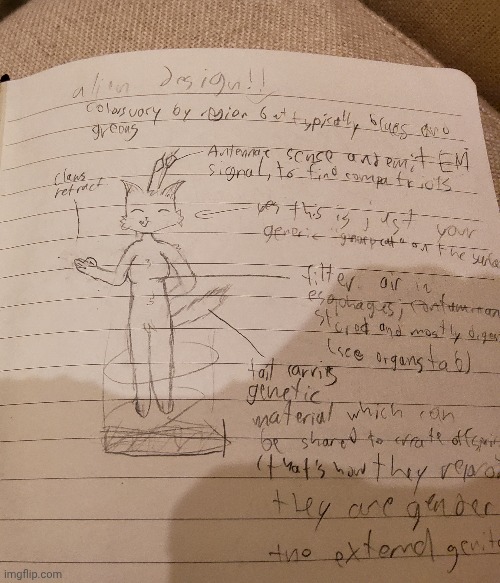 alien design!!
colors vary by region but typically blues and
greens
Antennae sense and emit EM
signal, to find compatriots
claws
retract
this is just your
generic on the surface
filter air in
esophagus,
stored and mostly
(see organs tab)
tail carris
genetic
material which can
be shared to create
(that's how they
they are
+no external
imgflip.com